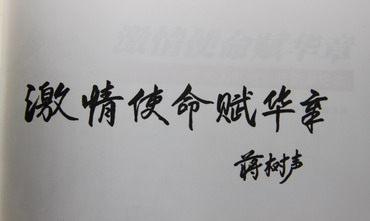 激情使命赋华章
蒋树声